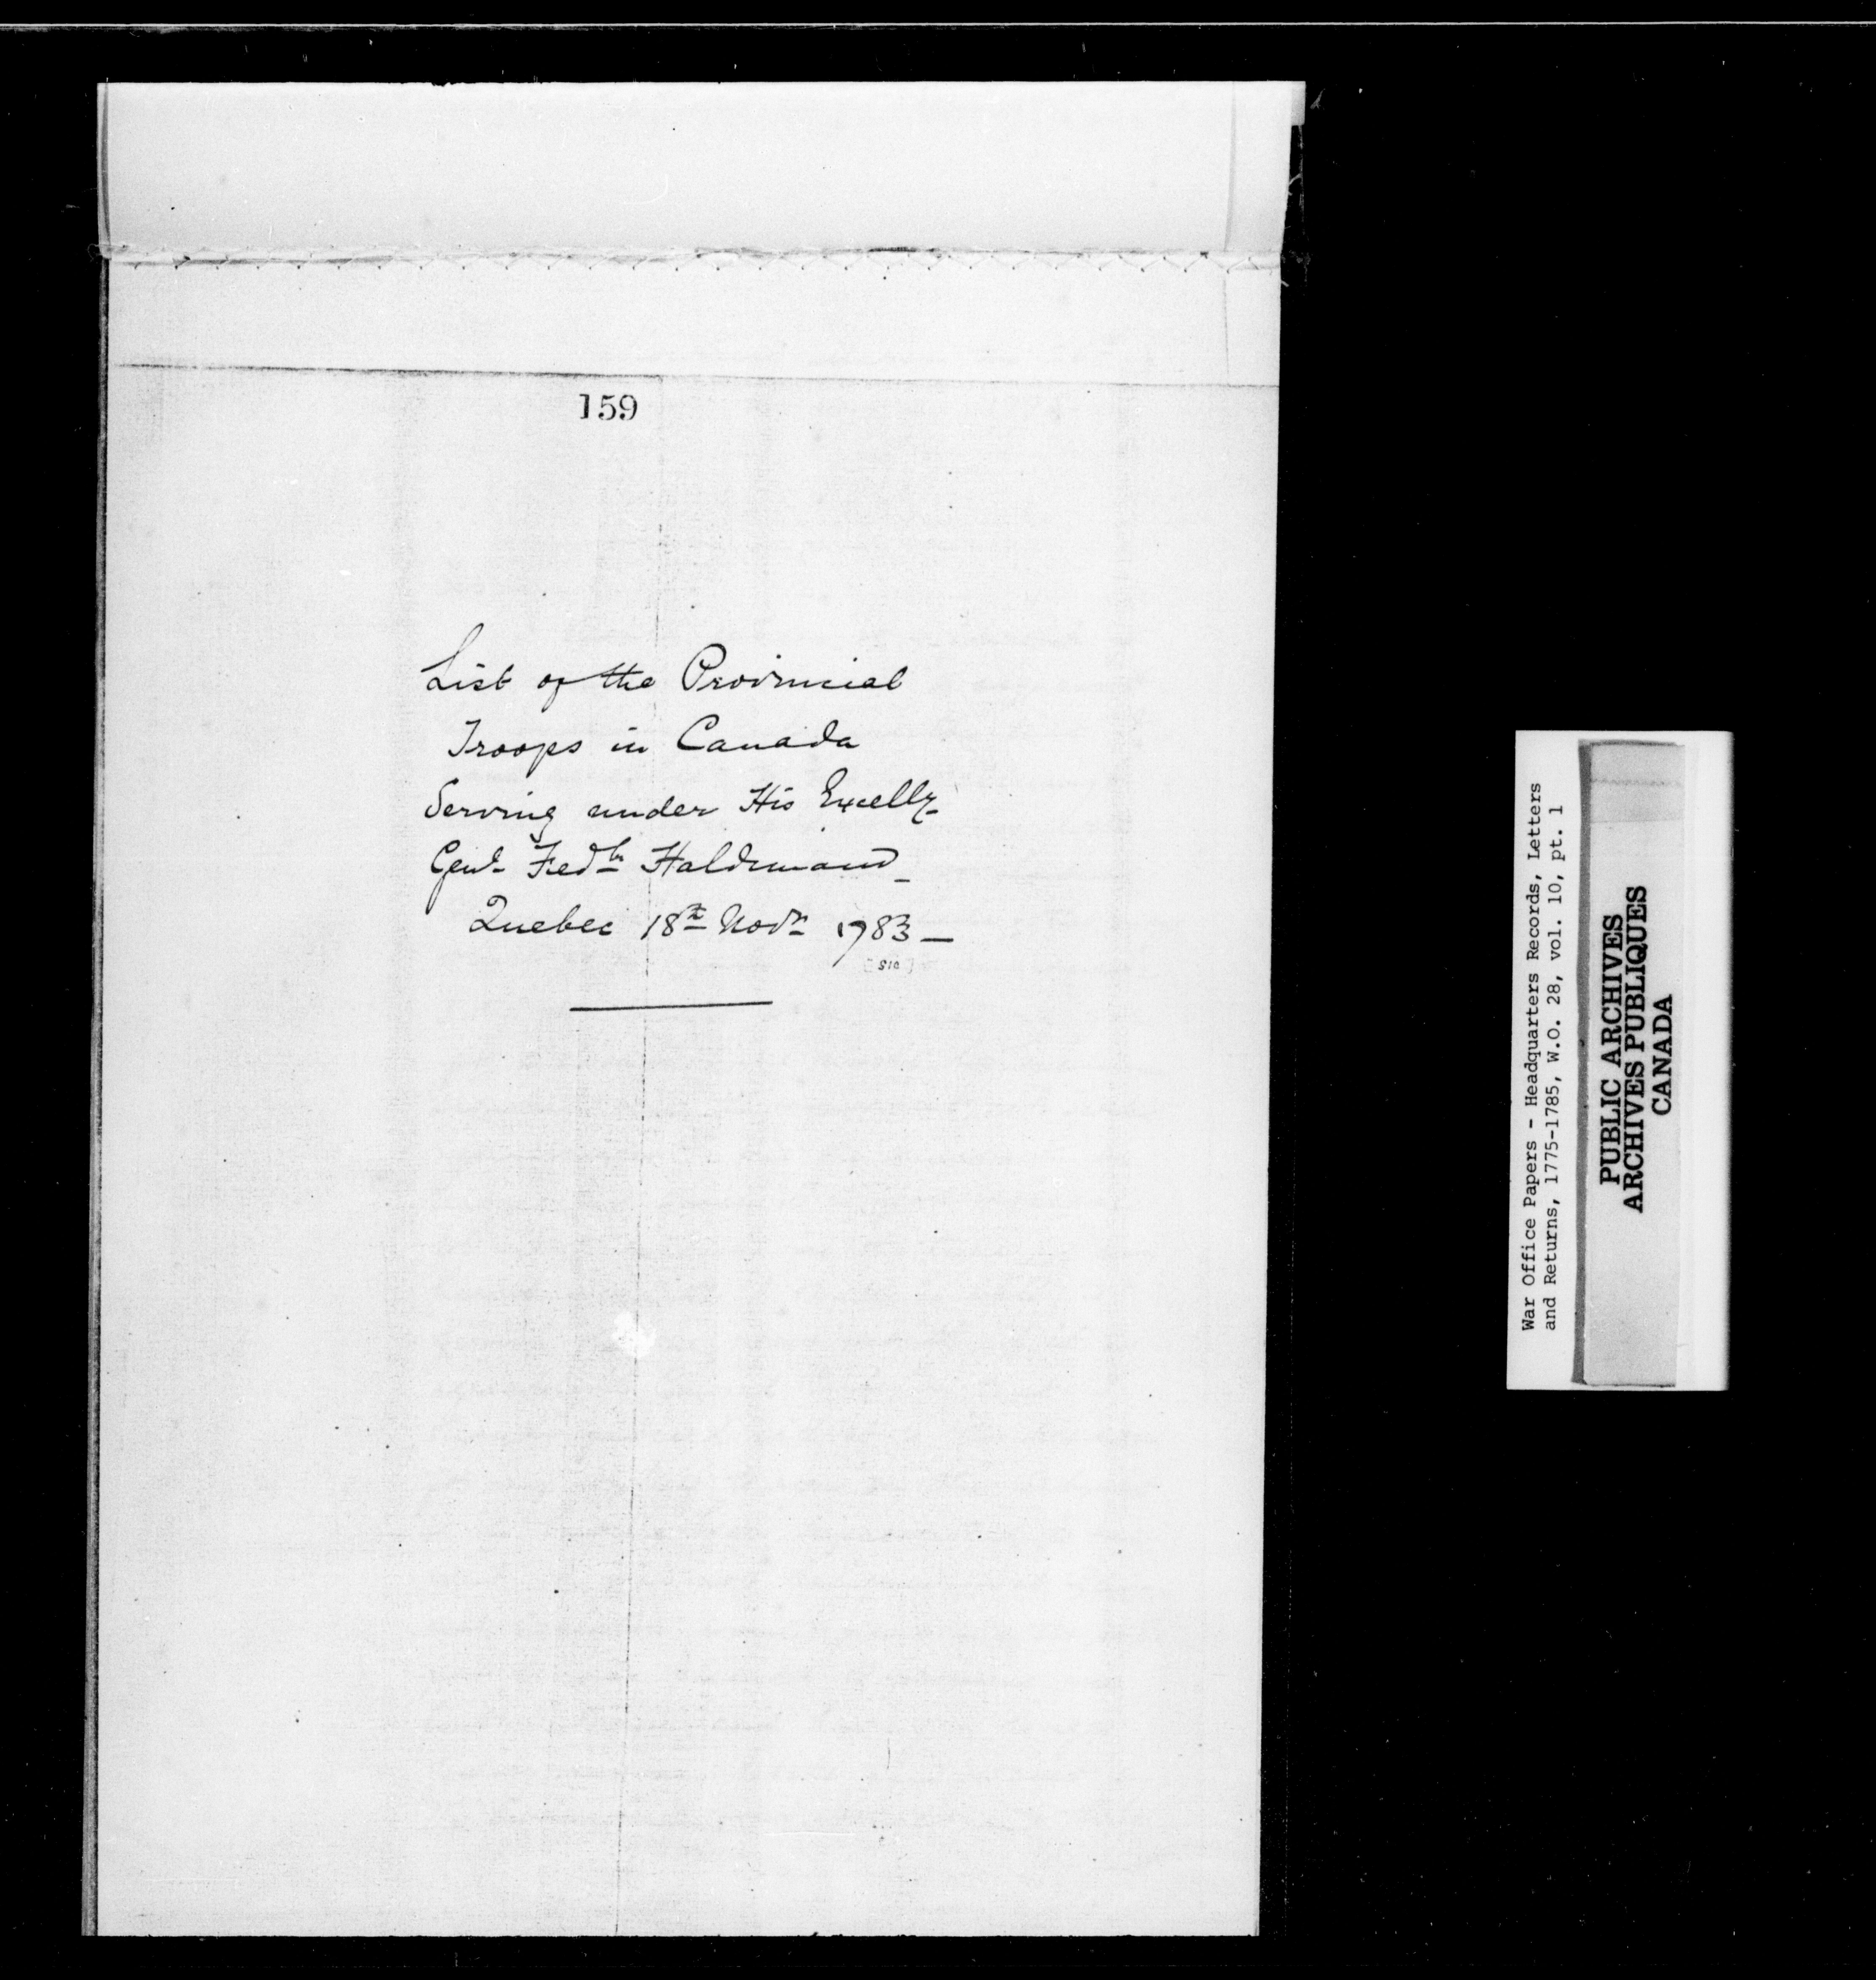 159
List of the Provincial
Troops in Canada
Serving under His Excelly
Genl Fredk Haldimand
Quebec 18th Novr 1783 —
[sic]
War Office Papers - Headquarters Records, Letters
and Returns, 1775-1785, W.O. 28, vol. 10, pt. 1
PUBLIC ARCHIVES
ARCHIVES PUBLIQUES
CANADA